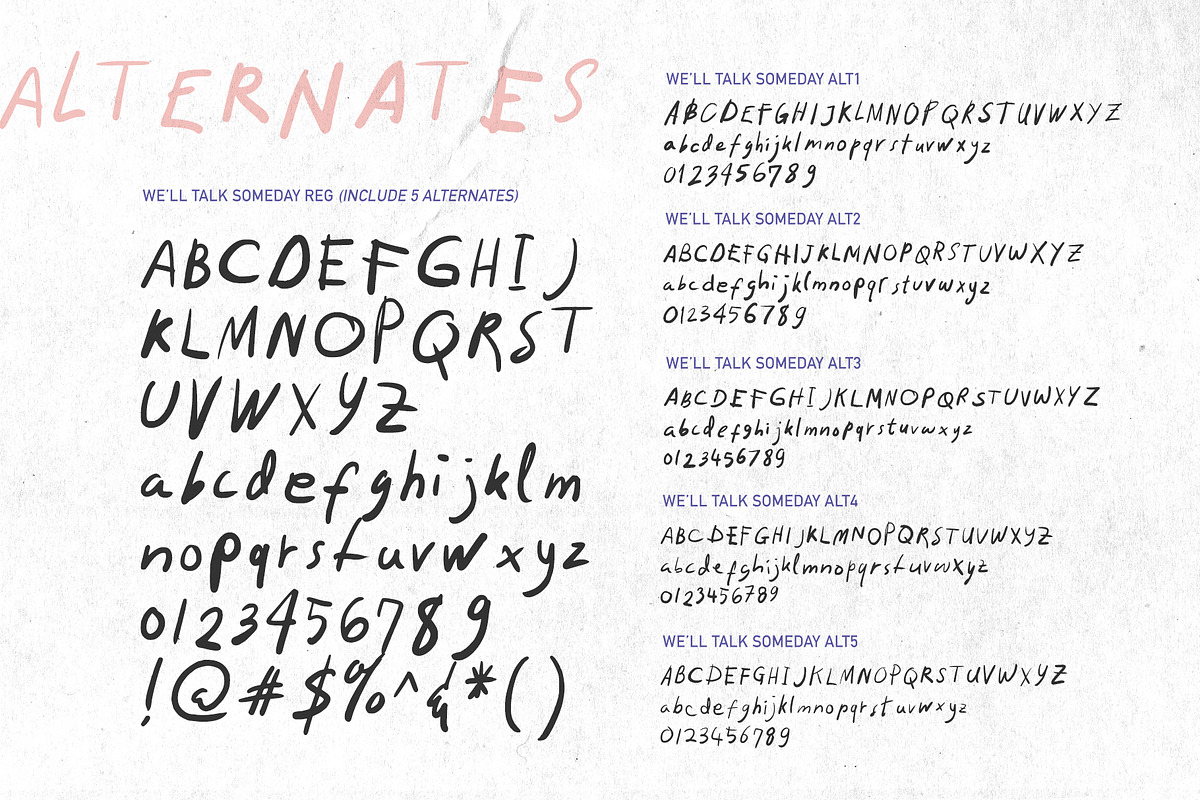 ALTERNATES
WE'LL TALK SOMEDAY REG (INCLUDE 5 ALTERNATES)
ABCDEFGHIJ
KLMNOPQRST
UVWXYZ
abcdefghijklm
nopqrstuvwxyz
0123456789
!@#$%^&*()
WE'LL TALK SOMEDAY ALT1
ABCDEFGHIJKLMNOPQRSTUVWXYZ
abcdefghijklmnopqrstuvwxyz
0123456789
WE'LL TALK SOMEDAY ALT2
ABCDEFGHIJKLMNOPQRSTUVWXYZ
abcdefghijklmnopqrstuvwxyz
0123456789
WE'LL TALK SOMEDAY ALT3
ABCDEFGHIJKLMNOPQRSTUVWXYZ
abcdefghijklmnopqrstuvwxyz
0123456789
WE'LL TALK SOMEDAY ALT4
ABCDEFGHIJKLMNOPQRSTUVWXYZ
abcdefghijklmnopqrstuvwxyz
0123456789
WE'LL TALK SOMEDAY ALT5
ABCDEFGHIJKLMNOPQRSTUVWXYZ
abcdefghijklmnopqrstuvwxyz
0123456789